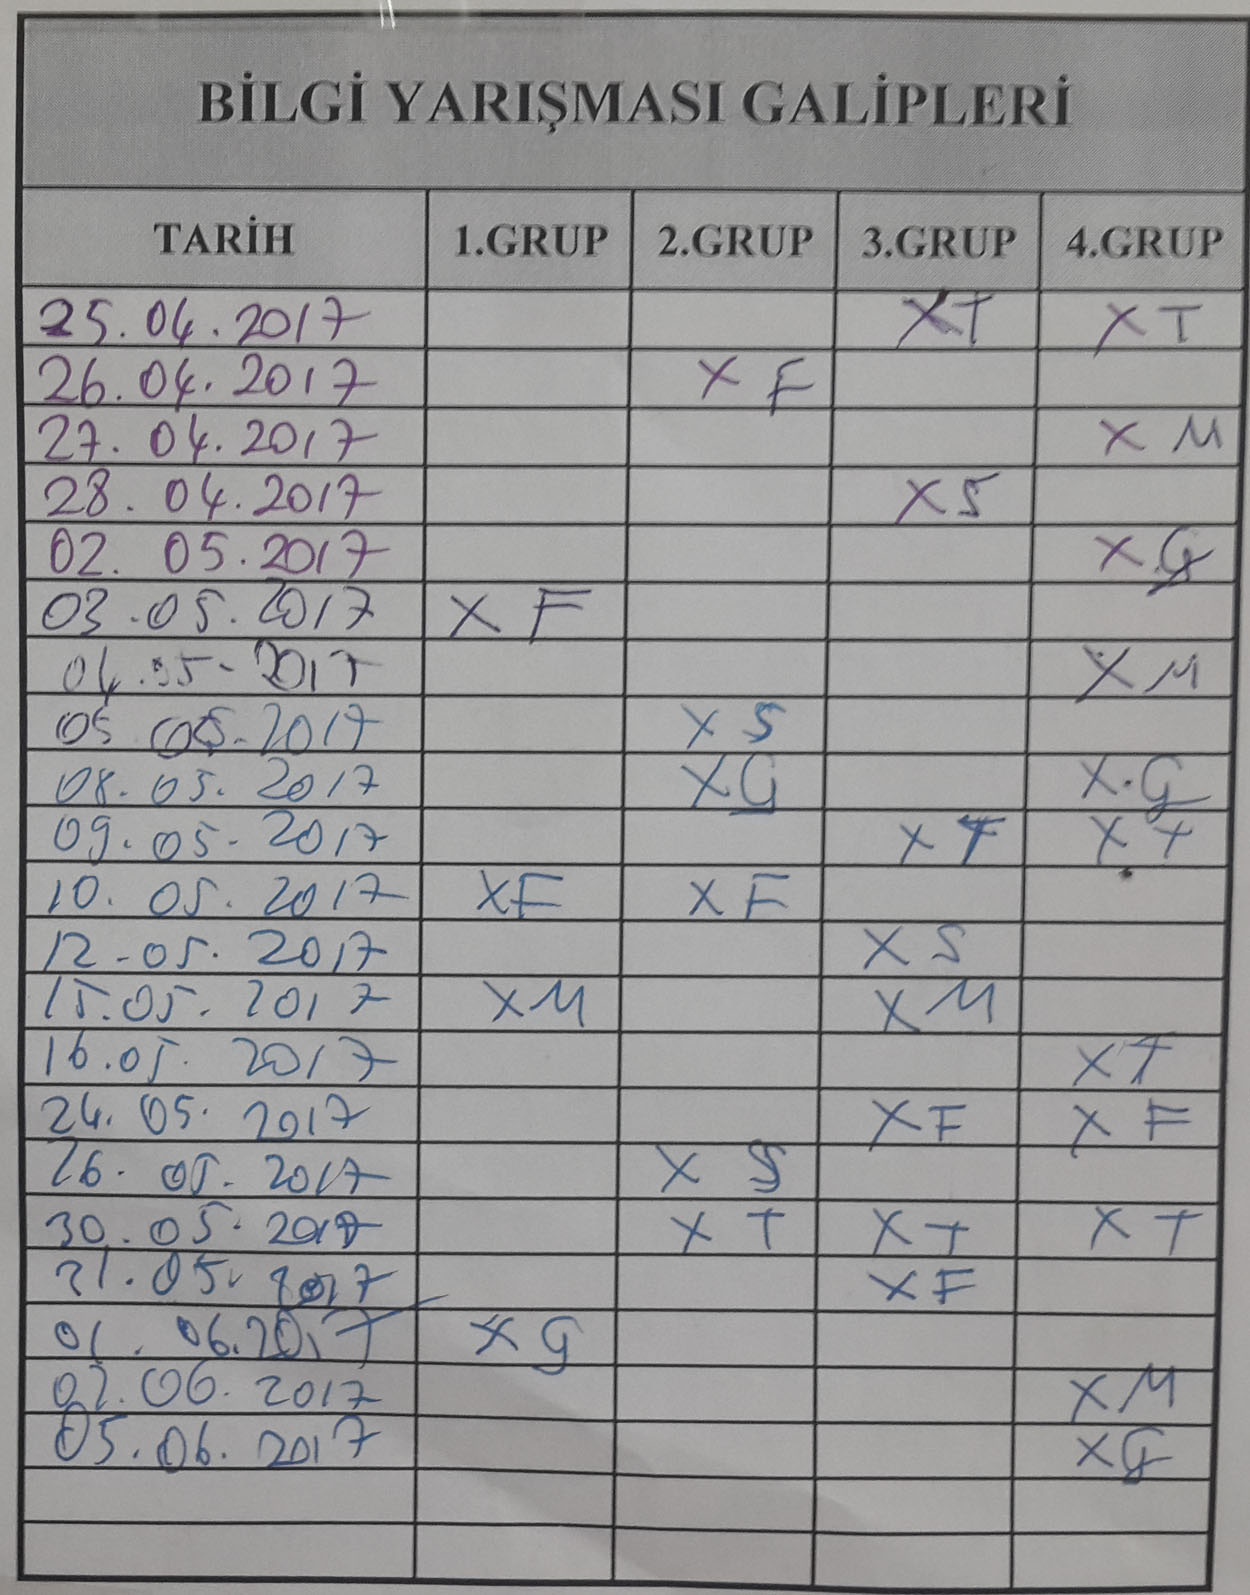 BİLGİ YARIŞMASI GALİPLERİ
TARİH 1.GRUP 2.GRUP 3.GRUP 4.GRUP
25.04.2017 XT XT
26.04.2017 X F
27.04.2017 X M
28.04.2017 XS
02.05.2017 X G
03.05.2017 X F
04.05-2017 X M
05.05.2017 X S
08.05.2017 XG X.G
09.05-2017 XT XT
10.05.2017 XF XF
12-05.2017 X S
15.05.2017 XM XM
16.05.2017 XT
24.05.2017 XF X F
26.05.2017 X S
30.05.2017 X T X T X T
31.05.2017 XF
01.06.2017 X G
02.06.2017 XM
05.06.2017 XG